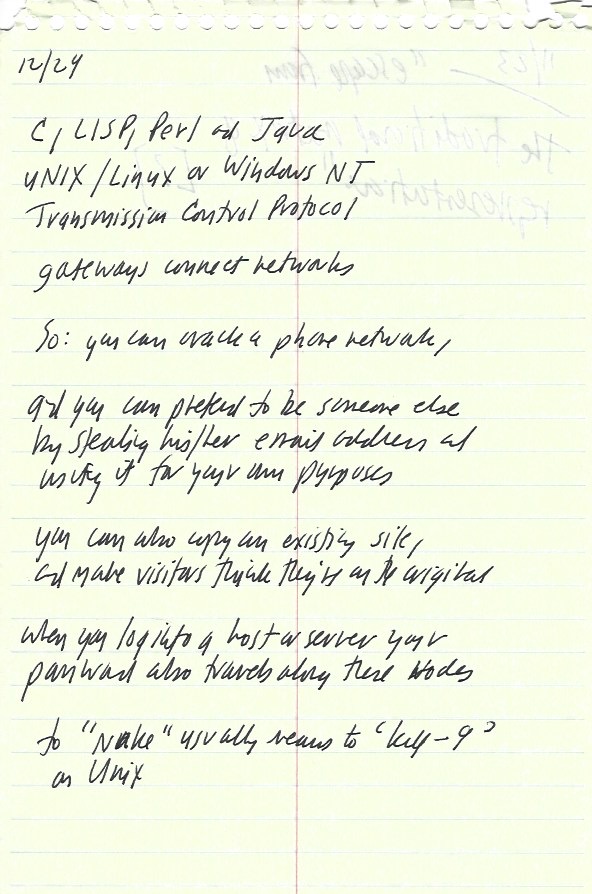 12/24
C, LISP, Perl and Java
UNIX/Linux or Windows NT
Transmission Control Protocol
gateways connect networks
So: you can crack a phone network,
and you can pretend to be someone else
by stealing his/her email address and
using it for your own purposes
you can also copy an existing site,
and make visitors think they're on the original
when you log into a host or server your
password also travels along these nodes
to "Nuke" usually means to 'kill -9'
on Unix
11/23 "escape from
the traditional
representation"